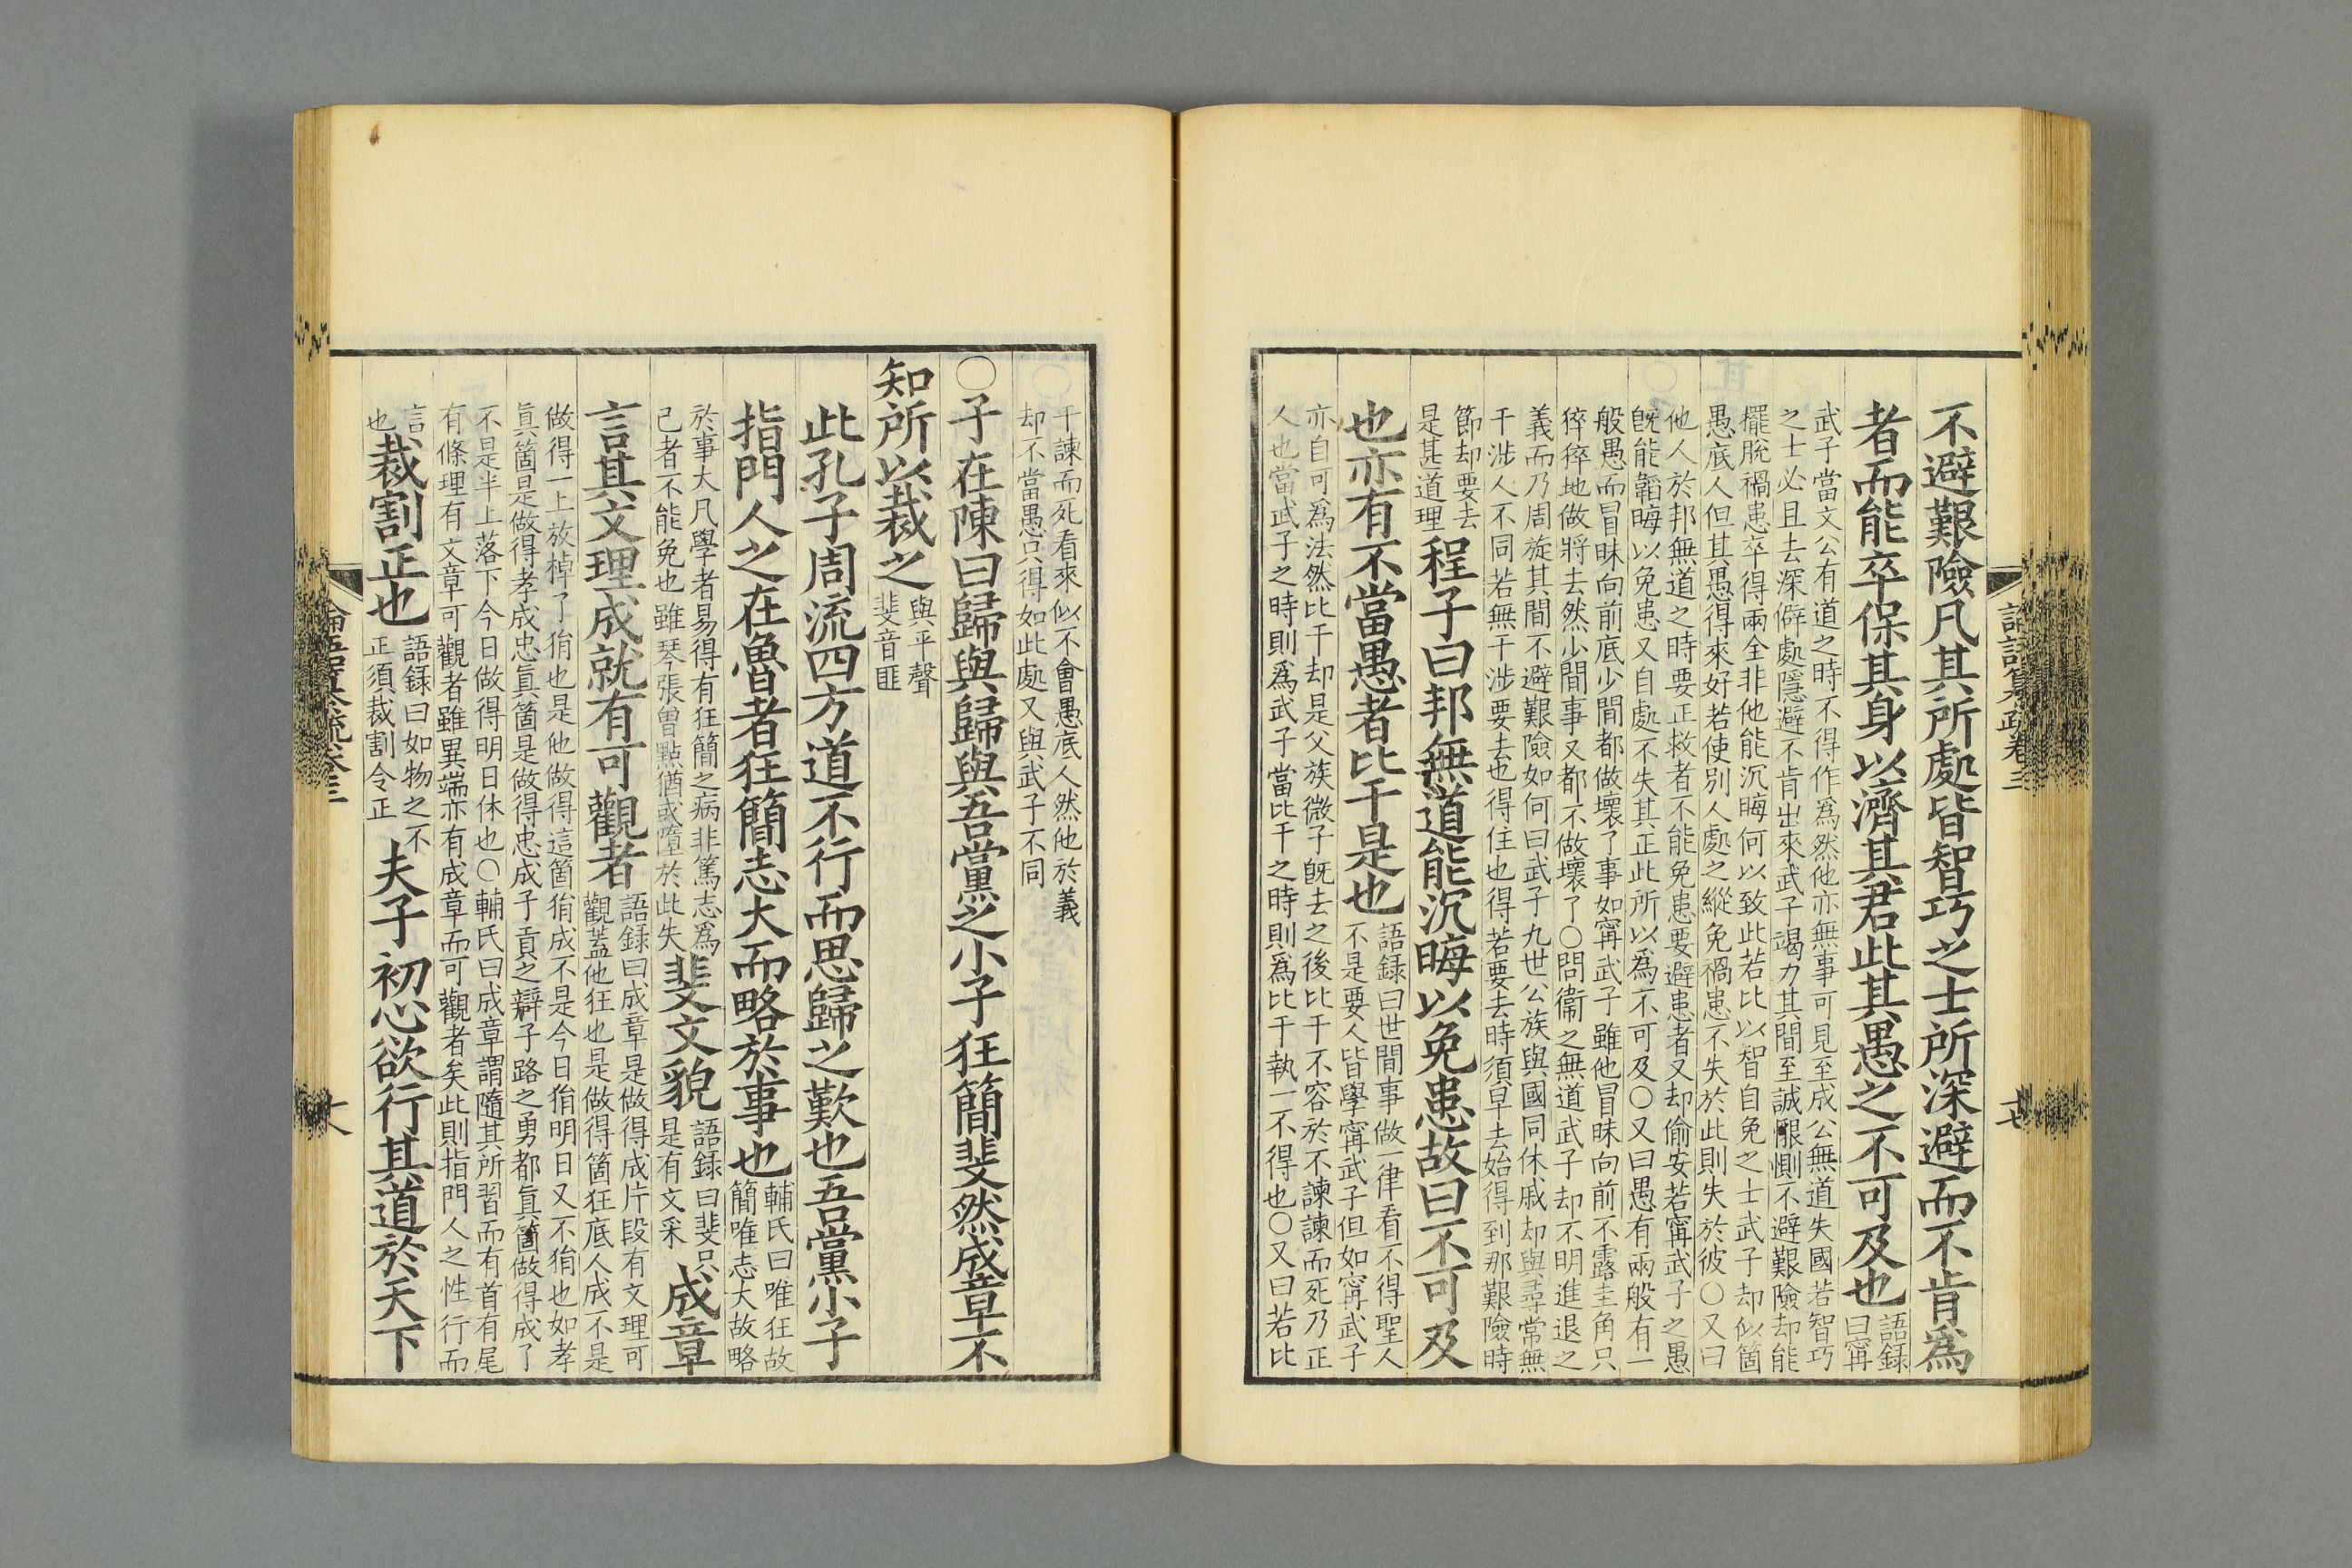 不避艱險凡其所處皆智巧之士所深避而不肯爲
者而能卒保其身以濟其君此其愚之不可及也語錄曰甯
武子當文公有道之時不得作爲然他亦無事可見至成公無道失國若智巧
之士必且去深僻處隱避不肯出來武子竭力其間至誠懇惻不避艱險却能
擺脫禍患卒得兩全非他能沉晦何以致此若比以智自免之士武子却似箇
愚底人但其愚得來好若使別人處之縱免禍患不失於此則失於彼○又曰
他人於邦無道之時要正救者不能免患要避患者又却偷安若甯武子之愚
旣能韜晦以免患又自處不失其正此所以爲不可及○又曰愚有兩般有一
般愚而冒昧向前底少間都做壞了事如甯武子雖他冒昧向前不露圭角只
猝猝地做將去然少間事又都不做壞了○問衞之無道武子却不明進退之
義而乃周旋其間不避艱險如何曰武子九世公族與國同休戚却與尋常無
干涉人不同若無干涉要去也得住也得若要去時須早去始得到那艱險時
節却要去
是甚道理程子曰邦無道能沉晦以免患故曰不可及
也亦有不當愚者比干是也語錄曰世間事做一律看不得聖人
不是要人皆學甯武子但如甯武子
亦自可爲法然比干却是父族微子旣去之後比干不容於不諫諫而死乃正
人也當武子之時則爲武子當比干之時則爲比干執一不得也○又曰若比
論語纂疏卷三
十七
干諫而死看來似不會愚底人然他於義
却不當愚只得如此處又與武子不同
○子在陳曰歸與歸與吾黨之小子狂簡斐然成章不
知所以裁之與平聲
斐音匪
此孔子周流四方道不行而思歸之歎也吾黨小子
指門人之在魯者狂簡志大而略於事也輔氏曰唯狂故
簡唯志大故略
於事大凡學者易得有狂簡之病非篤志爲
己者不能免也雖琴張曾點猶或墮於此失斐文貌語錄曰斐只
是有文采成章
言其文理成就有可觀者語錄曰成章是做得成片段有文理可
觀蓋他狂也是做得箇狂底人成不是
做得一上放棹了狷也是他做得這箇狷成不是今日狷明日又不狷也如孝
眞箇是做得孝成忠眞箇是做得忠成子貢之辯子路之勇都眞箇做得成了
不是半上落下今日做得明日休也○輔氏曰成章謂隨其所習而有首有尾
有條理有文章可觀者雖異端亦有成章而可觀者矣此則指門人之性行而
言
也裁割正也語錄曰如物之不
正須裁割令正夫子初心欲行其道於天下
論語纂疏卷三
十八